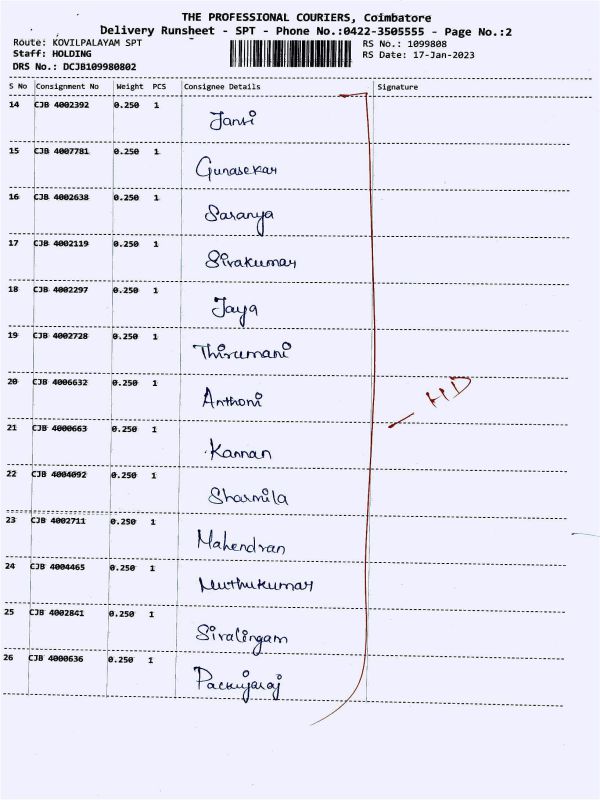 THE PROFESSIONAL COURIERS, Coimbatore
Delivery Runsheet - SPT - Phone No.:0422-3505555 - Page No.:2
Route: KOVILPALAYAM SPT RS No.: 1099808
Staff: HOLDING RS Date: 17-Jan-2023
DRS No.: DCJB109980802
S No Consignment No Weight PCS Consignee Details Signature
14 CJB 4002392 0.250 1 Jansi
15 CJB 4007781 0.250 1 Gunasekar
16 CJB 4002638 0.250 1 Saranya
17 CJB 4002119 0.250 1 Sivakumar
18 CJB 4002297 0.250 1 Jaya
19 CJB 4002728 0.250 1 Thirumani
20 CJB 4006632 0.250 1 Anthoni
HD
21 CJB 4000663 0.250 1 Kannan
22 CJB 4004092 0.250 1 Sharmila
23 CJB 4002711 0.250 1 Mahendran
24 CJB 4004465 0.250 1 Muthukumar
25 CJB 4002841 0.250 1 Sivalingam
26 CJB 4000636 0.250 1